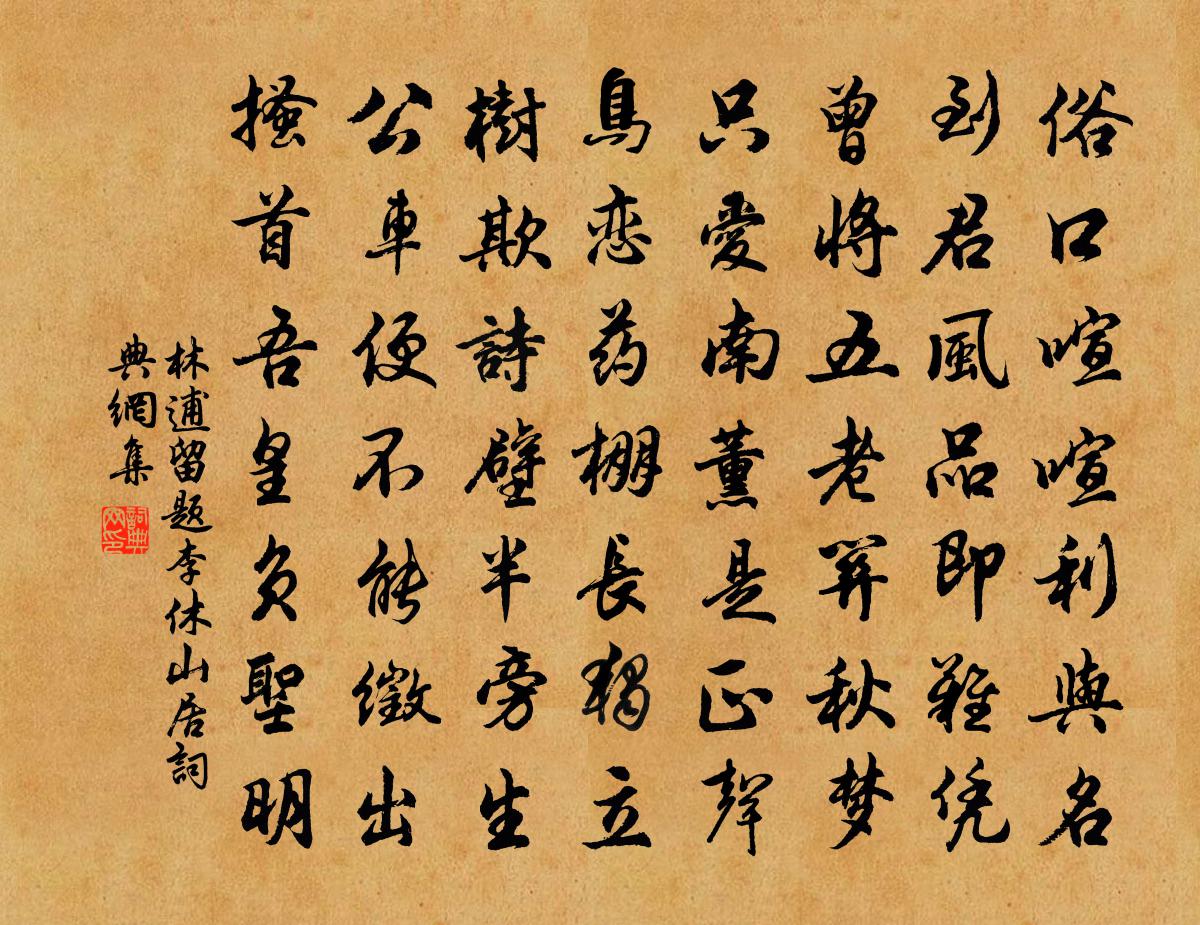 俗口喧喧利與名
到君風品即難凭
曾將五老關秋梦
只愛南薰是正聲
鳥恋药棚長獨立
樹欺詩壁半旁生
公車便不能徵出
搔首吾皇負聖明
林逋留题李休山居詞
典網集
詞典
网印